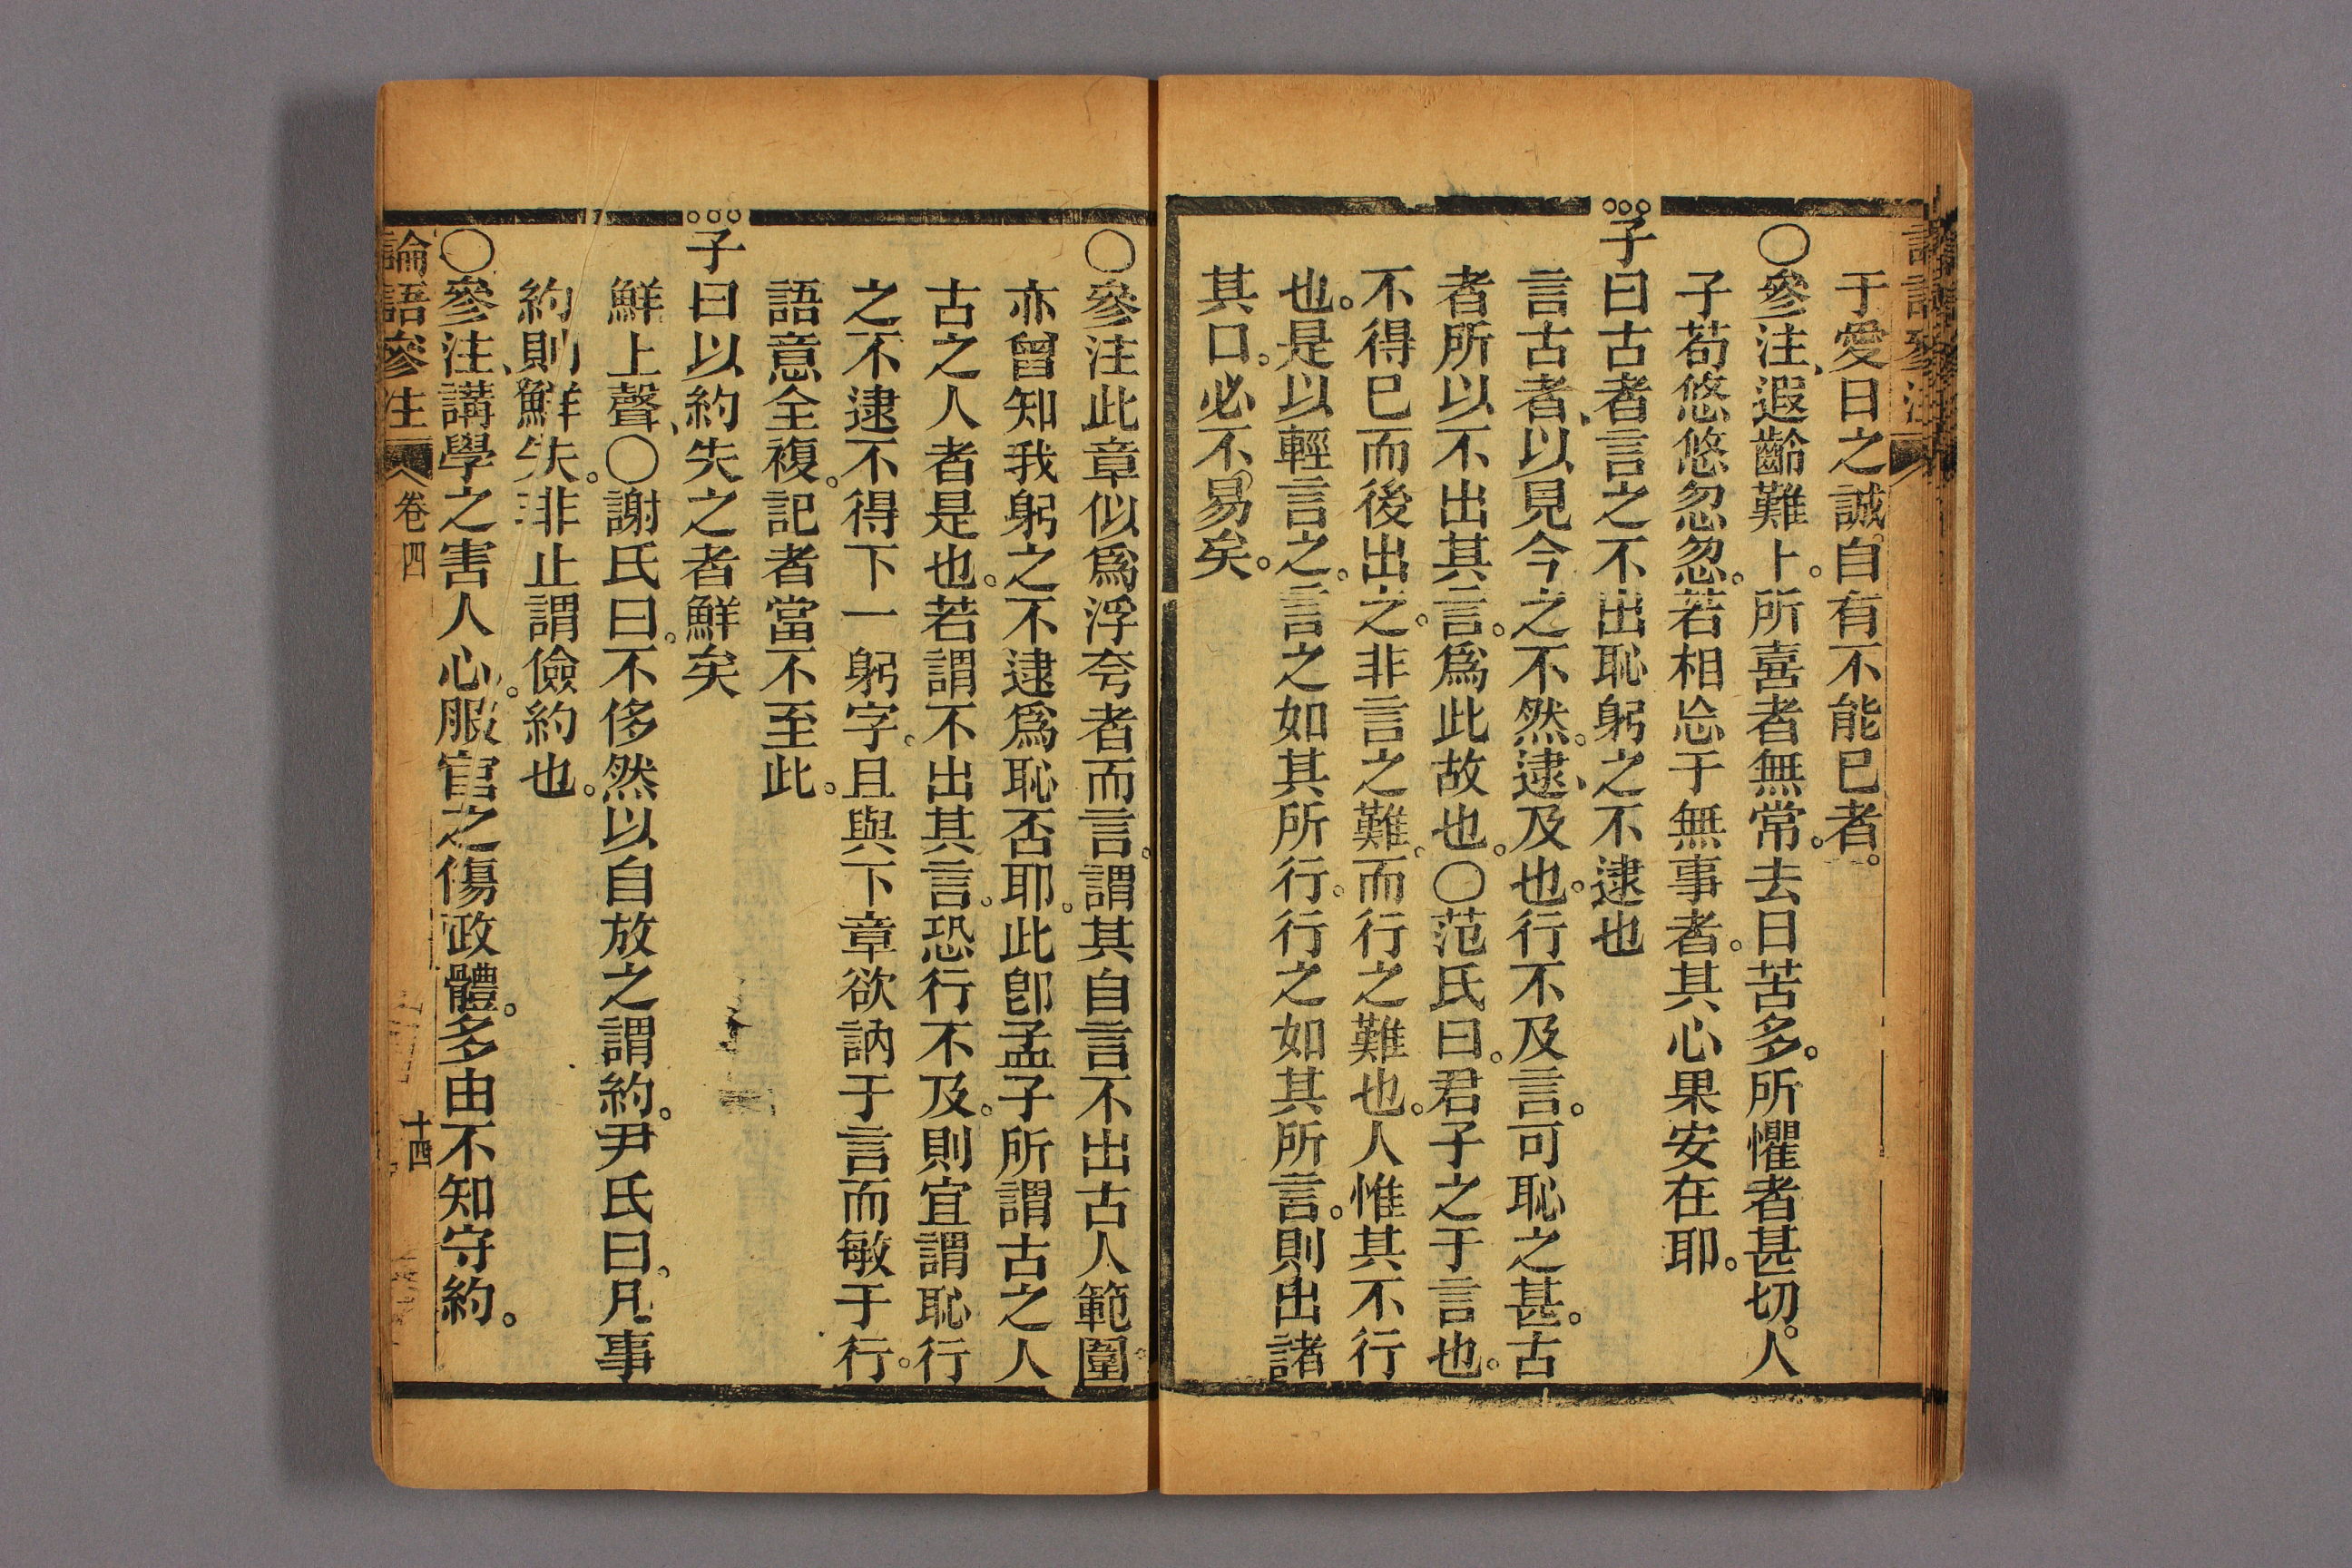 論語參注
于愛日之誠。自有不能已者。
○參注、遐齡難上。所喜者無常。去日苦多。所懼者甚切。人
子苟悠悠忽忽。若相忘于無事者。其心果安在耶。
子曰古者言之不出恥躬之不逮也
言古者、以見今之不然。逮、及也。行不及言。可恥之甚。古
者所以不出其言。爲此故也。○范氏曰。君子之于言也。
不得已而後出之。非言之難。而行之難也。人惟其不行
也。是以輕言之。言之如其所行。行之如其所言。則出諸
其口。必不易矣。
○參注此章似爲浮夸者而言。謂其自言不出古人範圍。
亦曾知我躬之不逮爲恥否耶。此卽孟子所謂古之人
古之人者是也。若謂不出其言。恐行不及。則宜謂恥行
之不逮不得下一躬字。且與下章欲訥于言而敏于行。
語意全複。記者當不至此。
子曰以約失之者鮮矣
鮮上聲、○謝氏曰。不侈然以自放之謂約。尹氏曰。凡事
約則鮮失。非止謂儉約也。
○參注、講學之害人心。服官之傷政體。多由不知守約。
論語參注 卷四 十四